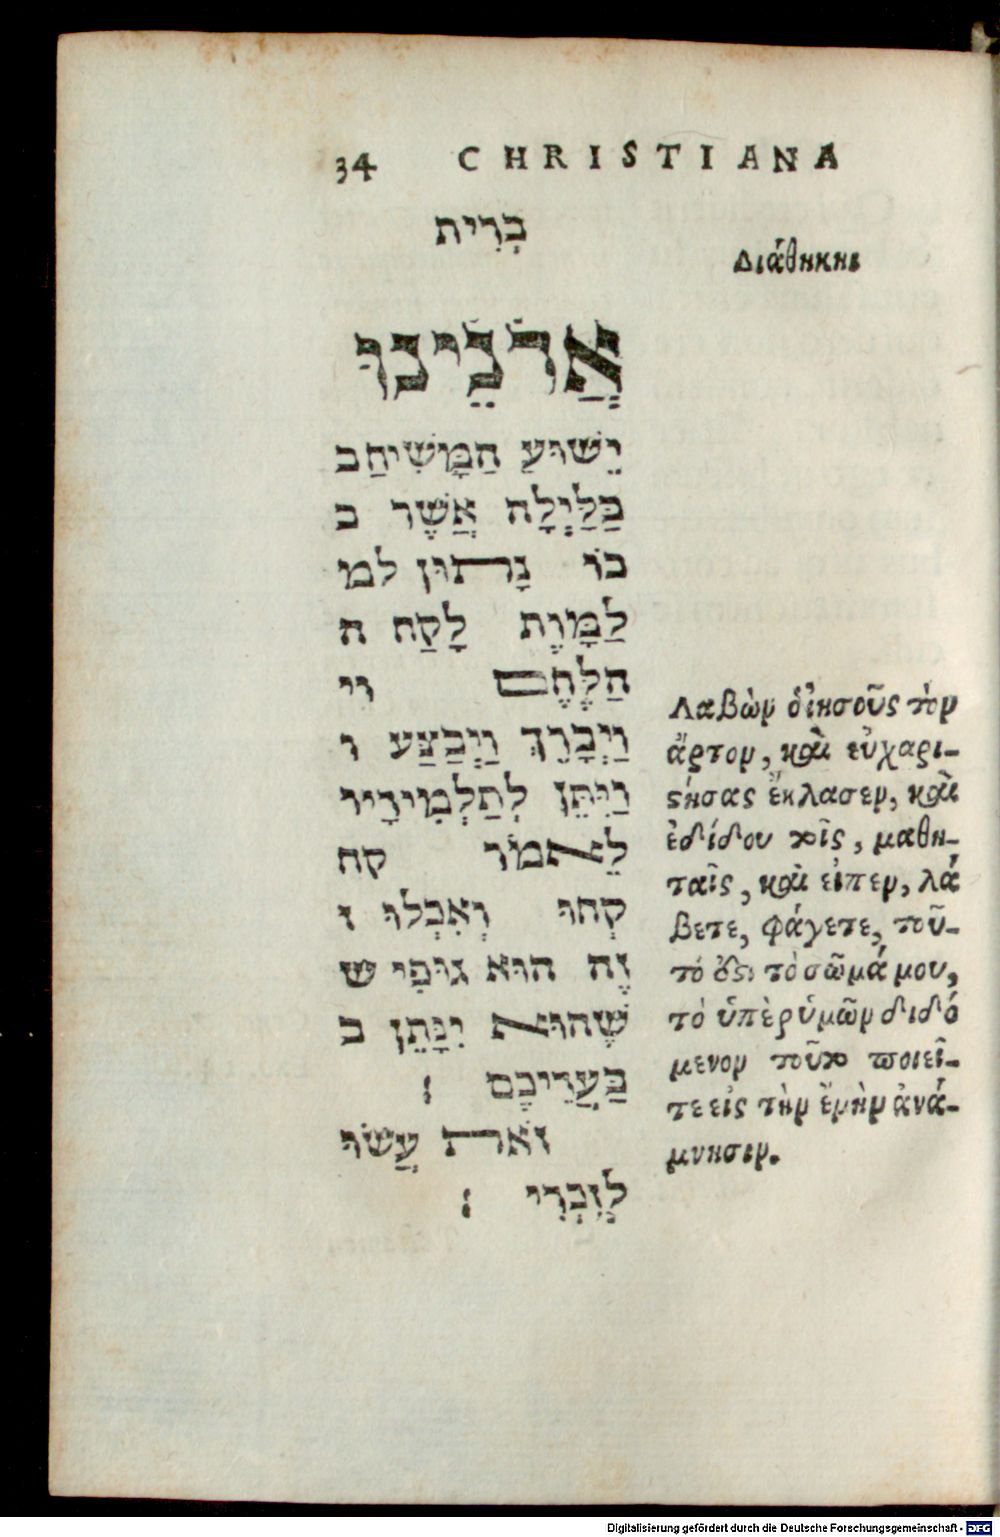 34 CHRISTIANA
בְּרִית
אֲדֹנֵינוּ
יֵשׁוּעַ הַמָּשִׁיחַ ב
בַּלַּיְלָה אֲשֶׁר ב
בוֹ נָתוּן למ
לַמָּוֶת לָקַח ה
הַלֶּחֶם וי
וַיְבָרֵךְ וַיְבַצַּע ו
וַיִּתֵּן לְתַלְמִידָיו
לֵאמֹר קח
קְחוּ וְאִכְלוּ ז
זֶה הוּא גוּפִי ש
שֶׁהוּא יִנָּתֵן ב
בַּעֲדֵיכֶם :
זֹאת עֲשׂוּ
לְזִכְרִי :
Διάθηκη.
Λαβὼν ὁ ἰησοῦς τὸν
ἄρτον, καὶ εὐχαρι-
στήσας ἔκλασεν, καὶ
ἐδίδου τοῖς, μαθη-
ταῖς, καὶ εἶπεν, λά
βετε, φάγετε, τοῦ-
τό ὅστι τὸ σῶμά μου,
τὸ ὑπὲρ ὑμῶν διδό
μενον τοῦτο ποιεῖ-
τε εἰς τὴν ἐμὴν ἀνά-
μνησιν.
Digitalisierung gefördert durch die Deutsche Forschungsgemeinschaft - DFG